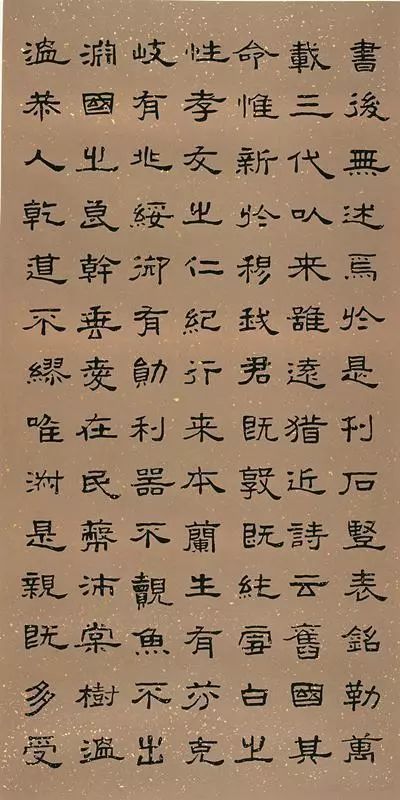 書後無述焉於是刊石豎表銘勒萬
載三代以来雖遠猶近詩云舊國其
命惟新於穆我君既敦既純雪白之
性孝友之仁紀行来本蘭生有芬克
岐有兆綏御有勛利器不覿魚不出
淵國之良幹垂愛在民蔽沛棠樹溫
溫恭人乾道不繆唯淑是親既多受